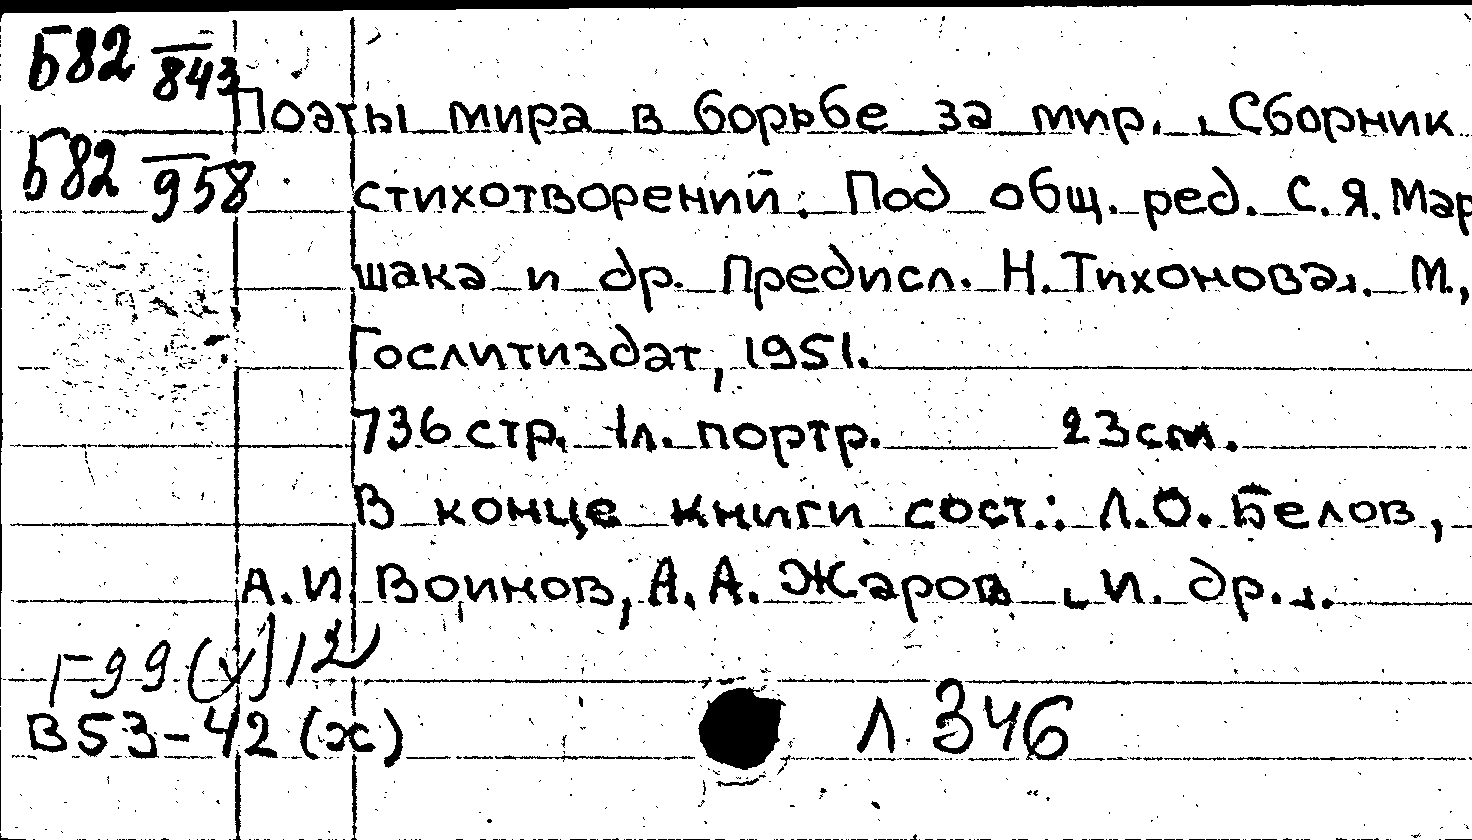 Б82 843
Поэты мира в борьбе за мир. Сборник
Б82 958
стихотворений. Под общ. ред. С.Я. Мар
шака и др. Предисл. Н. Тихонова. М.,
Гослитиздат, 1951.
736 стр. 1л. портр. 23 см.
В конце книги сост.: Л.О. Белов,
А.И. Воинов, А.А. Жаров и др.
Г-99(у)12
В53-42 (ж)
Л 346